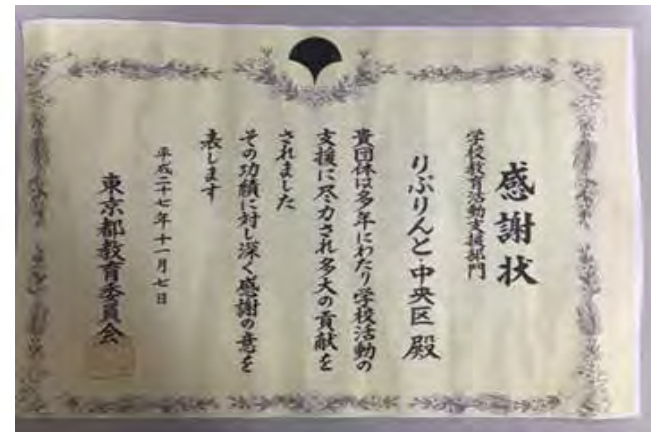 感謝状
学校教育活動支援部門
りぷりんと・中央区 殿
貴団体は多年にわたり学校活動の
支援に尽力され多大の貢献を
されました
その功績に対し深く感謝の意を
表します
平成二十七年十一月七日
東京都教育委員会